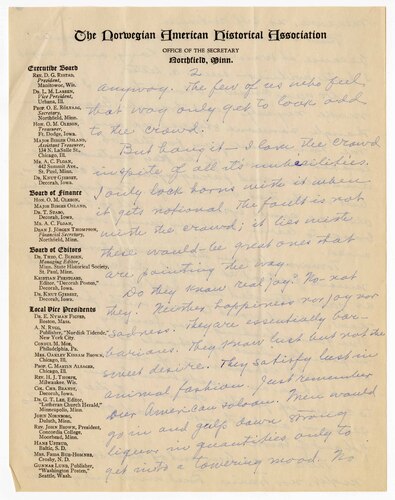 The Norwegian American Historical Association
OFFICE OF THE SECRETARY
Northfield, Minn.
Executive Board
REV. D. G. RISTAD,
President,
Manitowoc, Wis.
DR. L. M. LARSEN,
Vice President,
Urbana, Ill.
PROF. O. E. RÖLVAAG,
Secretary,
Northfield, Minn.
HON. O. M. OLESON,
Treasurer,
Ft. Dodge, Iowa.
MAJOR BIRGER OSLAND,
Assistant Treasurer,
134 N. LaSalle St.,
Chicago, Ill.
MR. A. C. FLOAN,
442 Summit Ave.,
St. Paul, Minn.
DR. KNUT GJERSET,
Decorah, Iowa.
Board of Finance
HON. O. M. OLESON,
MAJOR BIRGER OSLAND,
DR. T. STABO,
Decorah, Iowa.
MR. A. C. FLOAN,
DEAN J. JÖRGEN THOMPSON,
Financial Secretary,
Northfield, Minn.
Board of Editors
DR. THEO. C. BLEGEN,
Managing Editor,
Minn. State Historical Society,
St. Paul, Minn.
KRISTIAN PRESTGARD,
Editor, "Decorah Posten,"
Decorah, Iowa.
DR. KNUT GJERSET,
Decorah, Iowa.
Local Vice Presidents
Boston, Mass.
A. N. RYGG,
Publisher, "Nordisk Tidende,"
New York City.
Philadelphia, Pa.
Chicago, Ill.
Chicago, Ill.
Milwaukee, Wis.
Decorah, Iowa.
DR. G. T. LEE, Editor,
"Lutheran Church Herald,"
Minneapolis, Minn.
Duluth, Minn.
REV. JOHN BROWN, President,
Concordia College,
Moorhead, Minn.
HANS USTRUD,
Baltic, S. D.
Crosby, N. D.
GUNNAR LUND, Publisher,
"Washington Posten,"
Seattle, Wash.
2
anyway. The few of us who feel
that way only get to look odd
to the crowd.
But hang it – I love the crowd
inspite of all its imbecilities.
I only lock horns with it when
it gets notional. The fault is not
with the crowd; it lies with
these would-be great ones that
are pointing the way.
Do they know real joy? No – not
they! Neither happiness nor joy nor
sadness. They are essentially bar-
barians. They know lust but not the
sweet desire. They satisfy lust in
animal fashion. Just remember
Dear American saloon. Men would
go in and gulp down strong
liquor in quantities only to
get into a towering mood. No